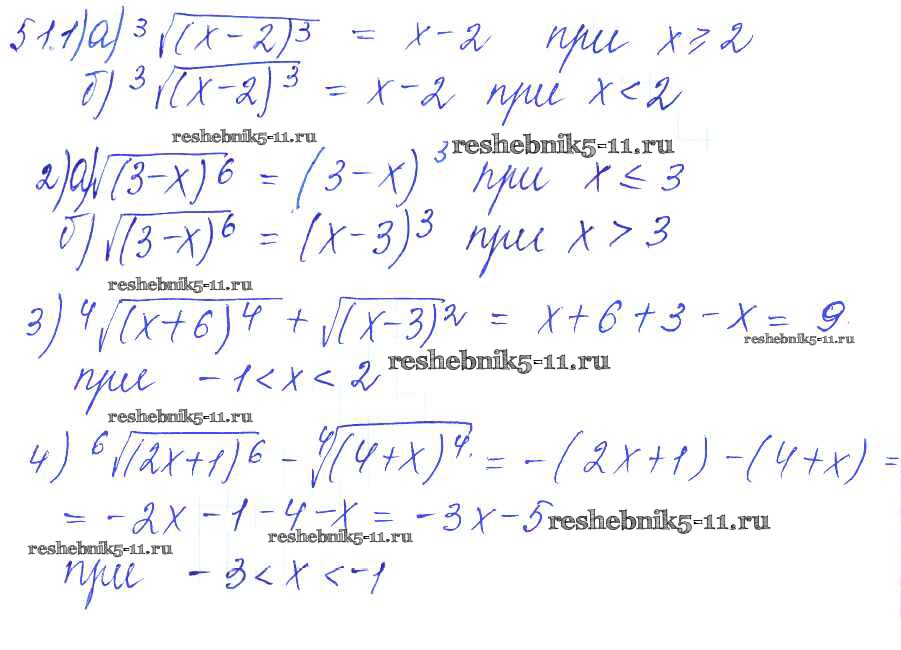 51.1) а) ³√(x-2)³ = x-2 при x ≥ 2
б) ³√(x-2)³ = x-2 при x < 2
reshebnik5-11.ru
reshebnik5-11.ru
2) а) √(3-x)⁶ = (3-x)³ при x ≤ 3
б) √(3-x)⁶ = (x-3)³ при x > 3
reshebnik5-11.ru
3) ⁴√(x+6)⁴ + √(x-3)² = x+6+3-x = 9.
reshebnik5-11.ru
reshebnik5-11.ru
при -1 < x < 2
reshebnik5-11.ru
4) ⁶√(2x+1)⁶ - ⁴√(4+x)⁴. = -(2x+1)-(4+x) =
= -2x-1-4-x = -3x-5
reshebnik5-11.ru
reshebnik5-11.ru
reshebnik5-11.ru
при -3 < x < -1